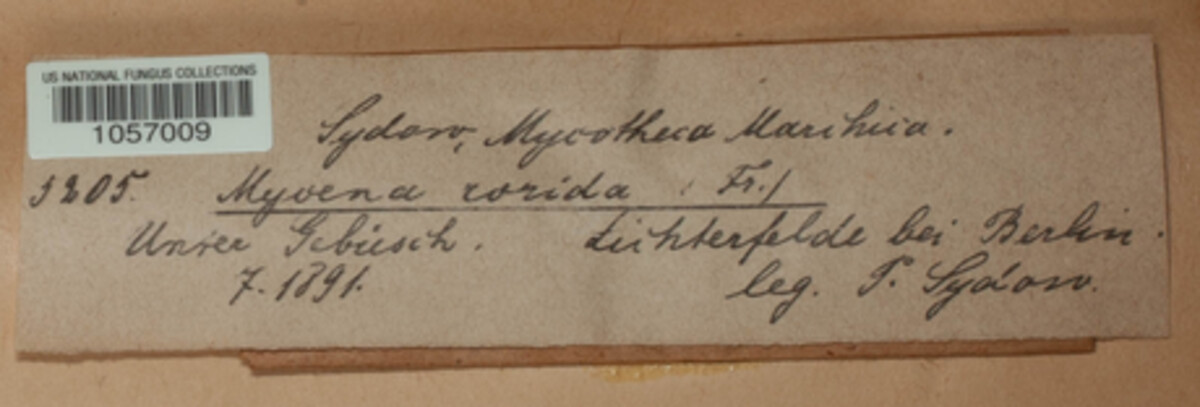 US NATIONAL FUNGUS COLLECTIONS
1057009
Sydow, Mycotheca Marchica.
5205. Mycena rorida (Fr.)
Unter Gebüsch. Lichterfelde bei Berlin.
7. 1891. leg. P. Sydow.